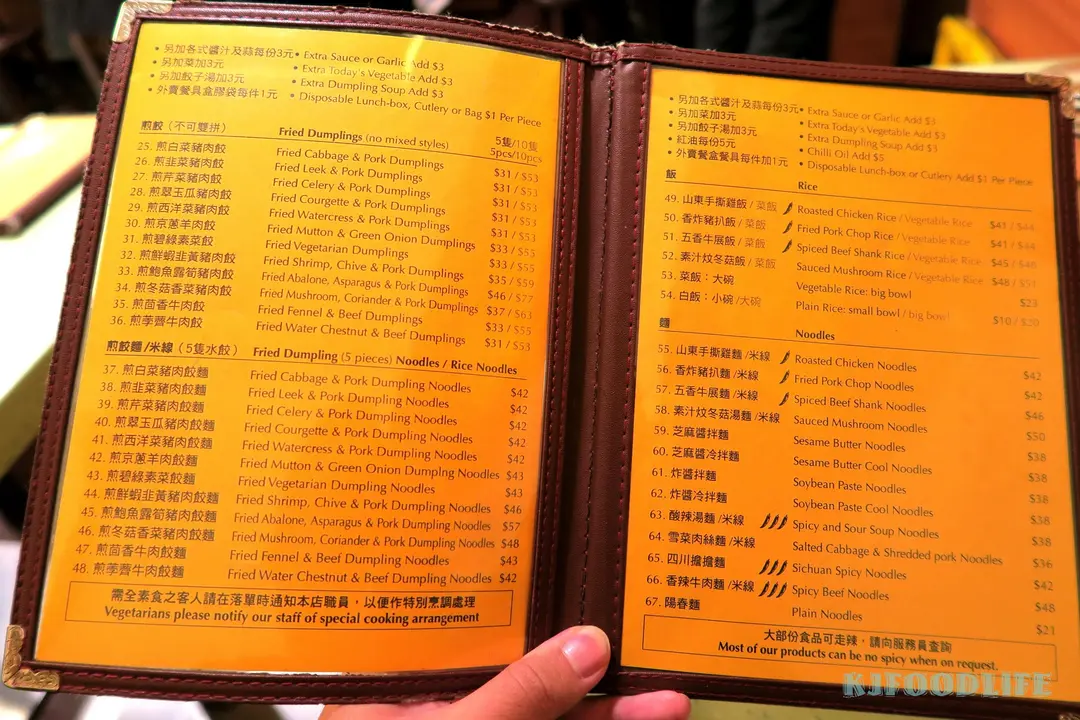 • 另加各式醬汁及蒜每份3元 • Extra Sauce or Garlic Add $3
• 另加菜加3元 • Extra Today's Vegetable Add $3
• 另加餃子湯加3元 • Extra Dumpling Soup Add $3
• 外賣餐具盒膠袋每件1元 • Disposable Lunch-box, Cutlery or Bag $1 Per Piece
煎餃 (不可雙拼) Fried Dumplings (no mixed styles) 5隻/10隻
5pcs/10pcs
25. 煎白菜豬肉餃 Fried Cabbage & Pork Dumplings $31 / $53
26. 煎韭菜豬肉餃 Fried Leek & Pork Dumplings $31 / $53
27. 煎芹菜豬肉餃 Fried Celery & Pork Dumplings $31 / $53
28. 煎翠玉瓜豬肉餃 Fried Courgette & Pork Dumplings $31 / $53
29. 煎西洋菜豬肉餃 Fried Watercress & Pork Dumplings $31 / $53
30. 煎京蔥羊肉餃 Fried Mutton & Green Onion Dumplings $33 / $55
31. 煎碧綠素菜餃 Fried Vegetarian Dumplings $33 / $55
32. 煎鮮蝦韭黃豬肉餃 Fried Shrimp, Chive & Pork Dumplings $35 / $59
33. 煎鮑魚露筍豬肉餃 Fried Abalone, Asparagus & Pork Dumplings $46 / $77
34. 煎冬菇香菜豬肉餃 Fried Mushroom, Coriander & Pork Dumplings $37 / $63
35. 煎茴香牛肉餃 Fried Fennel & Beef Dumplings $33 / $55
36. 煎荸薺牛肉餃 Fried Water Chestnut & Beef Dumplings $31 / $53
煎餃麵/米線 (5隻水餃) Fried Dumpling (5 pieces) Noodles / Rice Noodles
37. 煎白菜豬肉餃麵 Fried Cabbage & Pork Dumpling Noodles $42
38. 煎韭菜豬肉餃麵 Fried Leek & Pork Dumpling Noodles $42
39. 煎芹菜豬肉餃麵 Fried Celery & Pork Dumpling Noodles $42
40. 煎翠玉瓜豬肉餃麵 Fried Courgette & Pork Dumpling Noodles $42
41. 煎西洋菜豬肉餃麵 Fried Watercress & Pork Dumpling Noodles $42
42. 煎京蔥羊肉餃麵 Fried Mutton & Green Onion Dumplng Noodles $43
43. 煎碧綠素菜餃麵 Fried Vegetarian Dumpling Noodles $43
44. 煎鮮蝦韭黃豬肉餃麵 Fried Shrimp, Chive & Pork Dumpling Noodles $46
45. 煎鮑魚露筍豬肉餃麵 Fried Abalone, Asparagus & Pork Dumpling Noodles $57
46. 煎冬菇香菜豬肉餃麵 Fried Mushroom, Coriander & Pork Dumpling Noodles $48
47. 煎茴香牛肉餃麵 Fried Fennel & Beef Dumpling Noodles $43
48. 煎荸薺牛肉餃麵 Fried Water Chestnut & Beef Dumpling Noodles $42
需全素食之客人請在落單時通知本店職員，以便作特別烹調處理
Vegetarians please notify our staff of special cooking arrangement
• 另加各式醬汁及蒜每份3元 • Extra Sauce or Garlic Add $3
• 另加菜加3元 • Extra Today's Vegetable Add $3
• 另加餃子湯加3元 • Extra Dumpling Soup Add $3
• 紅油每份5元 • Chilli Oil Add $5
• 外賣餐盒餐具每件加1元 • Disposable Lunch-box or Cutlery Add $1 Per Piece
飯 Rice
49. 山東手撕雞飯 / 菜飯 Roasted Chicken Rice / Vegetable Rice $41 / $44
50. 香炸豬扒飯 / 菜飯 Fried Pork Chop Rice / Vegetable Rice $41 / $44
51. 五香牛展飯 / 菜飯 Spiced Beef Shank Rice / Vegetable Rice $45 / $48
52. 素汁炆冬菇飯 / 菜飯 Sauced Mushroom Rice / Vegetable Rice $48 / $51
53. 菜飯：大碗 Vegetable Rice: big bowl $23
54. 白飯：小碗 / 大碗 Plain Rice: small bowl / big bowl $10 / $20
麵 Noodles
55. 山東手撕雞麵 /米線 Roasted Chicken Noodles $42
56. 香炸豬扒麵 /米線 Fried Pork Chop Noodles $42
57. 五香牛展麵 /米線 Spiced Beef Shank Noodles $46
58. 素汁炆冬菇湯麵 /米線 Sauced Mushroom Noodles $50
59. 芝麻醬拌麵 Sesame Butter Noodles $38
60. 芝麻醬冷拌麵 Sesame Butter Cool Noodles $38
61. 炸醬拌麵 Soybean Paste Noodles $38
62. 炸醬冷拌麵 Soybean Paste Cool Noodles $38
63. 酸辣湯麵 /米線 Spicy and Sour Soup Noodles $38
64. 雪菜肉絲麵 /米線 Salted Cabbage & Shredded pork Noodles $36
65. 四川擔擔麵 Sichuan Spicy Noodles $42
66. 香辣牛肉麵 /米線 Spicy Beef Noodles $48
67. 陽春麵 Plain Noodles $21
大部份食品可走辣，請向服務員查詢
Most of our products can be no spicy when on request.
KJFOODLIFE